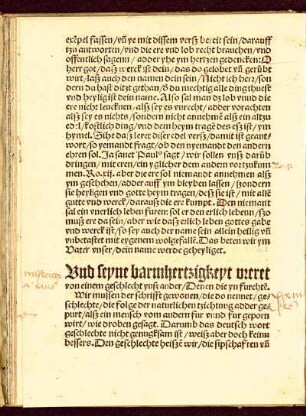 exēpel fassen/ vñ ye mit dissem versz bereit sein/ darauff
tzu antworten/ vnd die ere vnd lob recht brauchen/ vnd
offentlich sagenn/ adder yhe ym hertzen gedencken: O
herr got/ dasz werck ist dein/ das do gelobet vñ gerübt
wirt/ lasz auch den namen dein sein/ Nicht ich herr/ son
dern du hast ditzt gethan/ d(u) mechtig alle ding thuest
vnd heylig ist dein name. Also sal man dz lob vnnd die
ere nicht leucknen/ alsz sey es vnrecht/ adder vorachten
alsz sey es nichts/ sondern nicht annehmē alsz ein altzu
edel/ köstlich ding/ vnd dem heym tragē des es ist/ ym
hymel. Siht dasz leret disser edel versz/ damit ist geantt
wort/ so yemandt fragt/ ob den nyemandt den andern
ehren sol. Ja sanct Paul⁹ sagt/ wir sollen vnsz darūb
dringen/ mit eren/ ein yglicher dem andern vor zukum
men. Ro.xij. aber die ere sol niemandt annehmen alsz
yn geschehen/ adder auff ym bleyben lassen/ sondern
sie heyligen vnd gotte heym tragen/ desz sie ist/ mit alle
gutte vnd werck/ darausz die ere kumpt. Den niemant
sal ein vnerlich leben furen: sol er den erlich lebenn/ szo
musz ere da sein/ aber wie dasz erlich leben gottes gabe
vnd werck ist/ so sey auch der name sein allein heilig vñ
vnbetastet mit eygenem wolgefallē. Das beten wir ym
Vater vnser/ dein name werde geheyliget.
Vnd seyne barmhertzigkeyt weret
von einem geschlecht ynsz ander/ Denen die yn furchtē.
Wir mussen der schrifft gewonen/ die do nennet/ ge-
schlechte/ die folge der naturlichen tzichtūng ader ge-
purt/ alsz ein mensch vom andern fur vnnd fur geporn
wirt/ wie droben gesagt. Darumb das deutsch wort
geschlechte nicht genugksam ist/ weisz aber doch keins
bessers. Den geschlechte heissē wir/ die sipschafften vñ